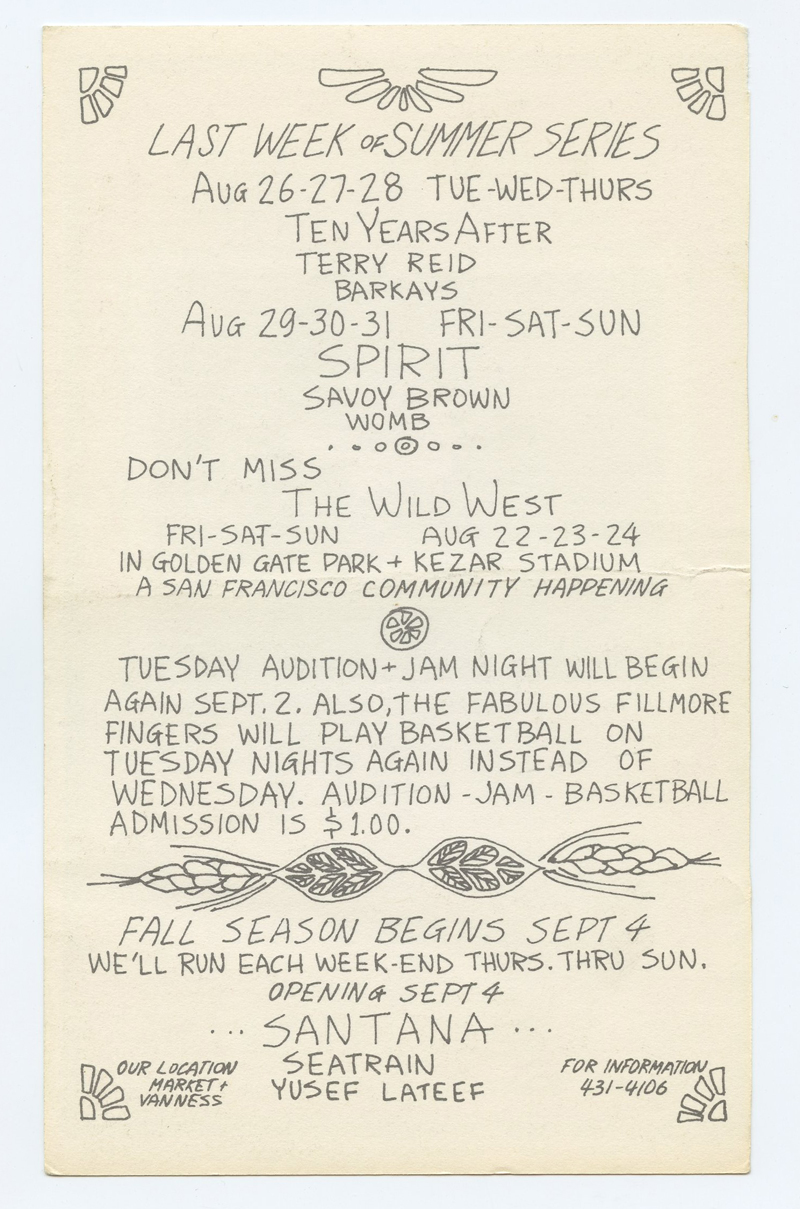 LAST WEEK OF SUMMER SERIES
AUG 26-27-28 TUE-WED-THURS
TEN YEARS AFTER
TERRY REID
BARKAYS
AUG 29-30-31 FRI-SAT-SUN
SPIRIT
SAVOY BROWN
WOMB
DON'T MISS
THE WILD WEST
FRI-SAT-SUN AUG 22-23-24
IN GOLDEN GATE PARK + KEZAR STADIUM
A SAN FRANCISCO COMMUNITY HAPPENING
TUESDAY AUDITION + JAM NIGHT WILL BEGIN
AGAIN SEPT. 2. ALSO, THE FABULOUS FILLMORE
FINGERS WILL PLAY BASKETBALL ON
TUESDAY NIGHTS AGAIN INSTEAD OF
WEDNESDAY. AUDITION - JAM - BASKETBALL
ADMISSION IS $1.00.
FALL SEASON BEGINS SEPT 4
WE'LL RUN EACH WEEK-END THURS. THRU SUN.
OPENING SEPT 4
... SANTANA ...
SEATRAIN
YUSEF LATEEF
OUR LOCATION
MARKET +
VANNESS
FOR INFORMATION
431-4106